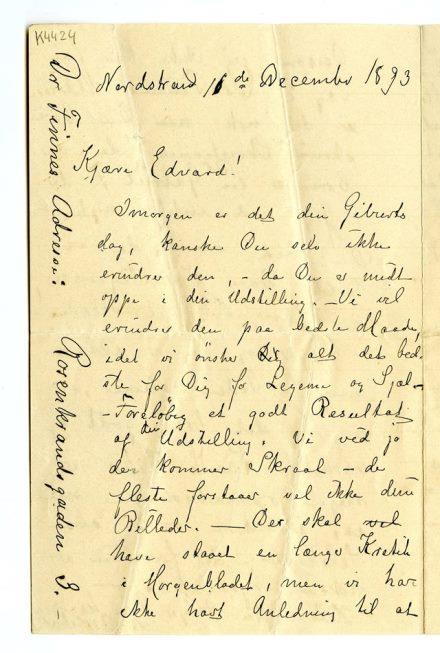 K4424
Nordstrand 11de December 1893
Kjære Edvard!
Imorgen er det din Geburts
dag, kanske Du selv ikke
erindrer den, – da Du er midt
oppe i din Udstilling. – Vi vil
erindre den paa bedste Maade,
idet vi ønsker Dig alt det bed-
ste for Dig for Legeme og Sjæl –
– Foreløbig et godt Resultat
af din Udstilling. Vi ved jo
der kommer Skraal – de
fleste forstaaer vel ikke dine
Billeder. — Der skal vel
have staaet en længe Kritik
i Morgenbladet, men vi har
ikke havt Anledning til at
Dr Finnes Adresse: Rosenkrandsgaden 9. –